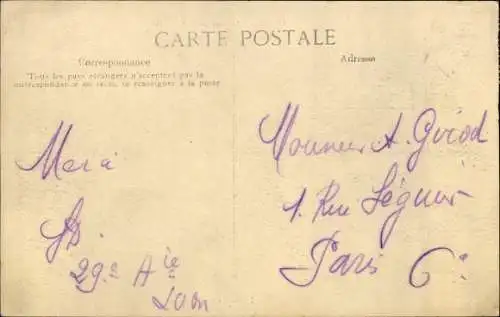 CARTE POSTALE
Correspondance
Tous les pays étrangers n'acceptent pas la
correspondance au recto, se renseigner à la poste
Adresse
Monsieur A. Girod
1. Rue Séguier
Paris 6e
Merci
29e Aie
Laon